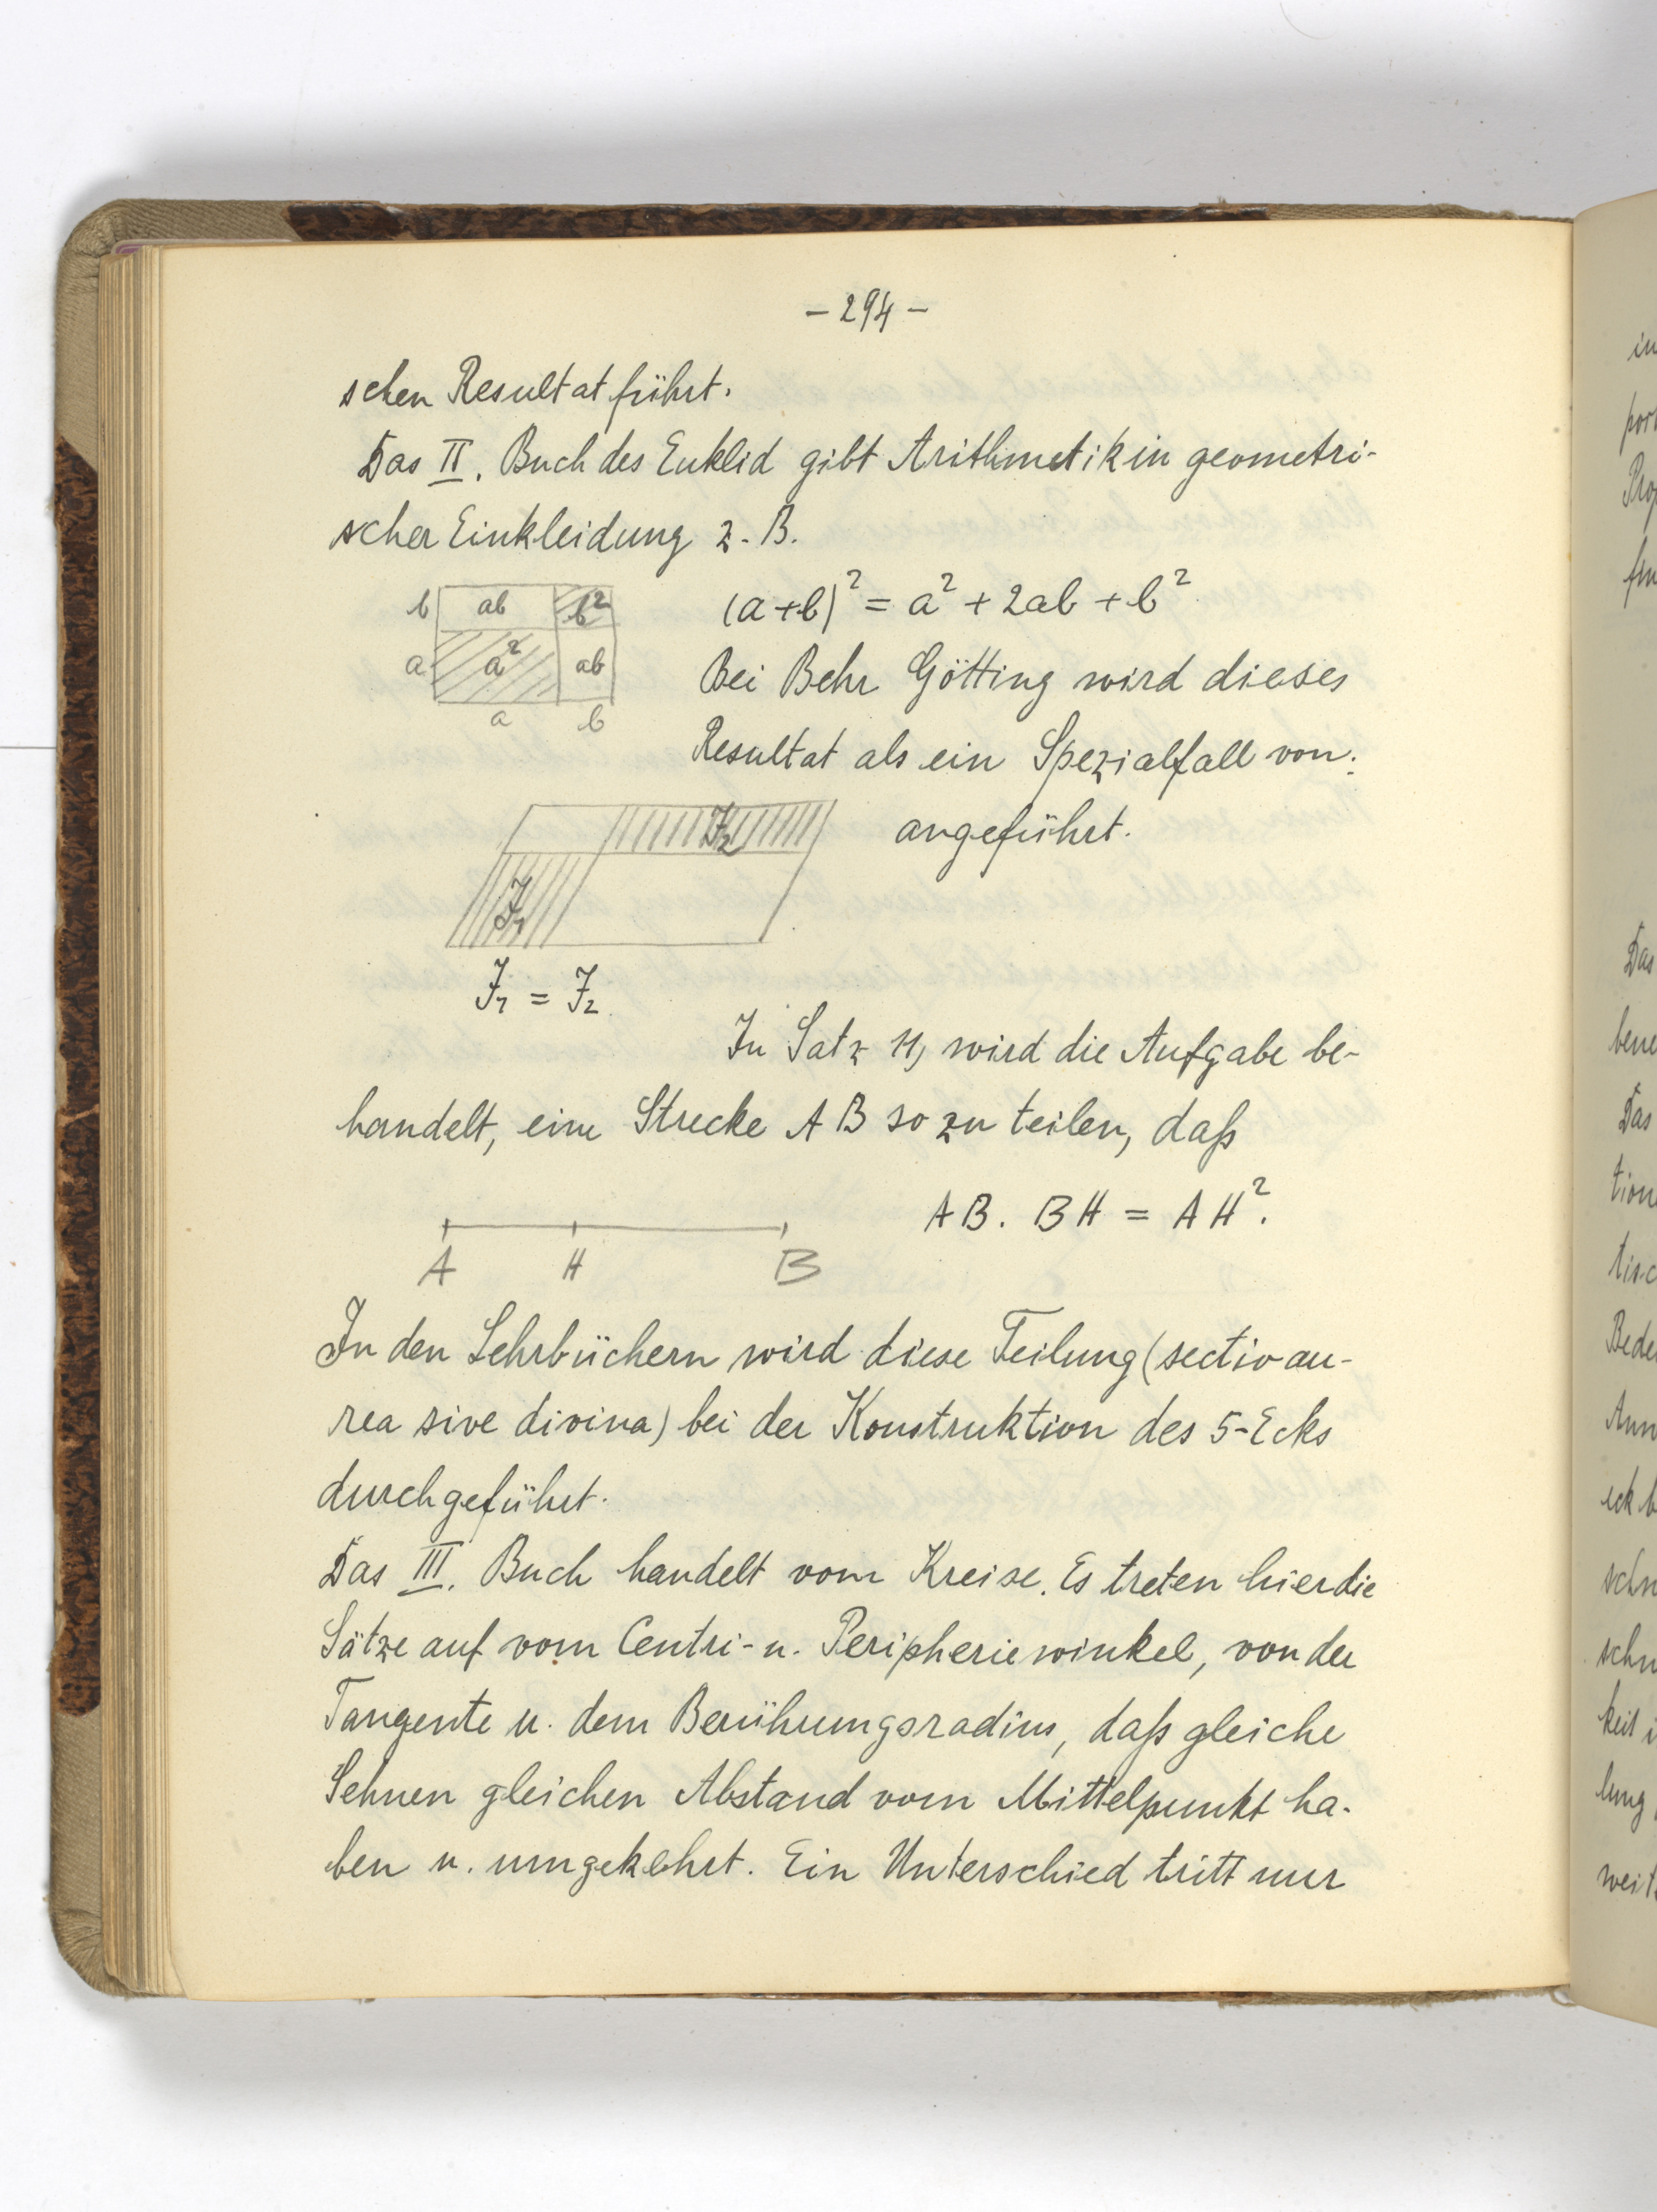 - 294 -
schen Resultat führt.
Das II. Buch des Euklid gibt Arithmetik in geometri-
scher Einkleidung z. B.
b ab b²
a a² ab
a b
(a+b)² = a² + 2ab + b²
Bei Behr Götting wird dieses
Resultat als ein Spezialfall von:
J₂
J₁
angeführt.
J₁ = J₂
In Satz 11, wird die Aufgabe be-
handelt, eine Strecke AB so zu teilen, daß
AB. BH = AH².
A H B
In den Lehrbüchern wird diese Teilung (sectio au-
rea sive divina) bei der Konstruktion des 5-Ecks
durchgeführt.
Das III. Buch handelt vom Kreise. Es treten hier die
Sätze auf vom Centri- u. Peripheriewinkel, von der
Tangente u. dem Berührungsradius, daß gleiche
Sehnen gleichen Abstand vom Mittelpunkt ha-
ben u. umgekehrt. Ein Unterschied tritt nur
Das
Das